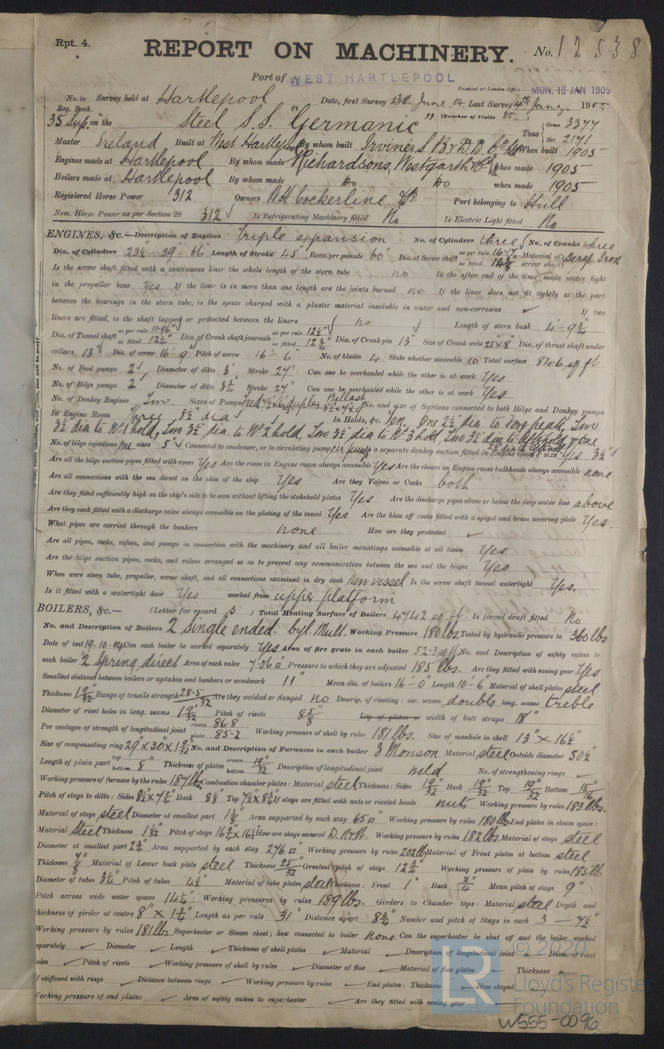 Rpt. 4.
REPORT ON MACHINERY. No. 12538
Port of WEST HARTLEPOOL
Received at London Office MON. 16 JAN 1905
No. in Survey held at Hartlepool Date, first Survey 13th June 04 Last Survey 4th Jany. 1905
Reg. Book. (Number of Visits 85)
35 Sup. on the Steel S.S. "Germanic" Tons Gross 3377 Net 2141
Master Ireland Built at West Hartlepool By whom built Irvine's S.B. & D.D. Co. Ld When built 1905
Engines made at Hartlepool By whom made Richardsons, Westgarth & Co when made 1905
Boilers made at Hartlepool By whom made Do Do when made 1905
Registered Horse Power 312 Owners W.H. Cockerline & Co Port belonging to Hull
Nom. Horse Power as per Section 28 312 Is Refrigerating Machinery fitted No Is Electric Light fitted No
ENGINES, &c.—Description of Engines Triple expansion No. of Cylinders three No. of Cranks three
Dia. of Cylinders 23½ - 39 - 66 Length of Stroke 45" Revs. per minute 60 Dia. of Screw shaft as per rule as fitted Material of screw shaft Scrap Iron
Is the screw shaft fitted with a continuous liner the whole length of the stern tube no Is the after end of the liner made water tight
in the propeller boss Yes If the liner is in more than one length are the joints burned no If the liner does not fit tightly at the part
between the bearings in the stern tube, is the space charged with a plastic material insoluble in water and non-corrosive ✓ If two
liners are fitted, is the shaft lapped or protected between the liners no Length of stern bush 4'-9¾"
Dia. of Tunnel shaft as per rule as fitted Dia. of Crank shaft journals as per rule as fitted Dia. of Crank pin 13" Size of Crank webs 25x8 Dia. of thrust shaft under
collars 13" Dia. of screw 16'-9" Pitch of screw 16'-6" No. of blades 4 State whether moveable no Total surface 84.6 sq ft
No. of Feed pumps 2 Diameter of ditto 3" Stroke 27" Can one be overhauled while the other is at work Yes
No. of Bilge pumps 2 Diameter of ditto 3½ Stroke 27" Can one be overhauled while the other is at work Yes
No. of Donkey Engines Two Sizes of Pumps No. and size of Suctions connected to both Bilge and Donkey pumps
In Engine Room three 3½" dia In Holds, &c. Ten. One 2½ dia to fore peak, Two
3½ dia to No 1 hold, Two 3½ dia. to No 2 hold, Two 3½ dia to No 3 hold, Two 3½ dia to
No. of bilge injections one sizes 5" Connected to condenser, or to circulating pump Is a separate donkey suction fitted in Engine room & size Yes 3½"
Are all the bilge suction pipes fitted with roses Yes Are the roses in Engine room always accessible Yes Are the sluices on Engine room bulkheads always accessible none
Are all connections with the sea direct on the skin of the ship Yes Are they Valves or Cocks both
Are they fixed sufficiently high on the ship's side to be seen without lifting the stokehold plates Yes Are the discharge pipes above or below the deep water line above
Are they each fitted with a discharge valve always accessible on the plating of the vessel Yes Are the blow off cocks fitted with a spigot and brass covering plate Yes
What pipes are carried through the bunkers none How are they protected ✓
Are all pipes, cocks, valves, and pumps in connection with the machinery and all boiler mountings accessible at all times Yes
Are the bilge suction pipes, cocks, and valves arranged so as to prevent any communication between the sea and the bilges Yes
When were stern tube, propeller, screw shaft, and all connections examined in dry dock New vessel Is the screw shaft tunnel watertight Yes.
Is it fitted with a watertight door Yes worked from upper platform
BOILERS, &c.— (Letter for record S) Total Heating Surface of Boilers 4742 sq ft Is forced draft fitted No
No. and Description of Boilers 2 Single ended. Cyl. Mult. Working Pressure 180 lbs Tested by hydraulic pressure to 360 lbs
Date of test 19.10.04 Can each boiler be worked separately Yes Area of fire grate in each boiler 52.3 sq ft No. and Description of safety valves to
each boiler 2 Spring direct Area of each valve 7.06 Pressure to which they are adjusted 185 lbs. Are they fitted with easing gear Yes
Smallest distance between boilers or uptakes and bunkers or woodwork 11" Mean dia. of boilers 16'-0" Length 10-6" Material of shell plates steel
Thickness 1 9/32 Range of tensile strength 28.5/32 Are they welded or flanged no Descrip. of riveting: cir. seams double long. seams treble
Diameter of rivet holes in long. seams 1 9/32" Pitch of rivets 8⅝ Lap of plates or width of butt straps 18"
Per centages of strength of longitudinal joint rivets 86.8 plate 85.2 Working pressure of shell by rules 181 lbs. Size of manhole in shell 13" x 16½
Size of compensating ring 29 x 30 x 1 9/32 No. and Description of Furnaces in each boiler 3 Morison Material steel Outside diameter 50½
Length of plain part top bottom 8" Thickness of plates crown bottom 19/32 Description of longitudinal joint weld No. of strengthening rings ✓
Working pressure of furnace by the rules 187 lbs Combustion chamber plates: Material steel Thickness: Sides 19/32 Back 19/32 Top 19/32 Bottom 15/16
Pitch of stays to ditto: Sides Back 8⅝ Top If stays are fitted with nuts or riveted heads nuts Working pressure by rules 183 lbs.
Material of stays steel Diameter at smallest part 1½ Area supported by each stay 65 Working pressure by rules 180 lbs End plates in steam space:
Material Steel Thickness 1 3/32 Pitch of stays 16½ x 16½ How are stays secured D.N.&W. Working pressure by rules 182 lbs. Material of stays steel
Diameter at smallest part 2¾ Area supported by each stay 276 Working pressure by rules 202 lbs Material of Front plates at bottom steel
Thickness ⅞ Material of Lower back plate steel Thickness 25/32 Greatest pitch of stays 12½ Working pressure of plate by rules 185 lb.
Diameter of tubes 3¼ Pitch of tubes 4½ Material of tube plates steel Thickness: Front 1" Back ¾ Mean pitch of stays 9"
Pitch across wide water spaces 14½" Working pressures by rules 189 lbs. Girders to Chamber tops: Material steel Depth and
thickness of girder at centre 8" x 1¾" Length as per rule 31" Distance apart 8¾" Number and pitch of Stays in each 3 - 7½"
Working pressure by rules 181 lbs Superheater or Steam chest; how connected to boiler none Can the superheater be shut off and the boiler worked
separately ✓ Diameter ✓ Length ✓ Thickness of shell plates ✓ Material ✓ Description of longitudinal joint ✓ Diam. of rivet
holes ✓ Pitch of rivets ✓ Working pressure of shell by rules ✓ Diameter of flue ✓ Material of flue plates ✓ Thickness
If stiffened with rings ✓ Distance between rings ✓ Working pressure by rules ✓ End plates: Thickness ✓ How stayed
Working pressure of end plates ✓ Area of safety valves to superheater ✓ Are they fitted with easing gear
© 2020
LR
Lloyd's Register
Foundation
W555-0096